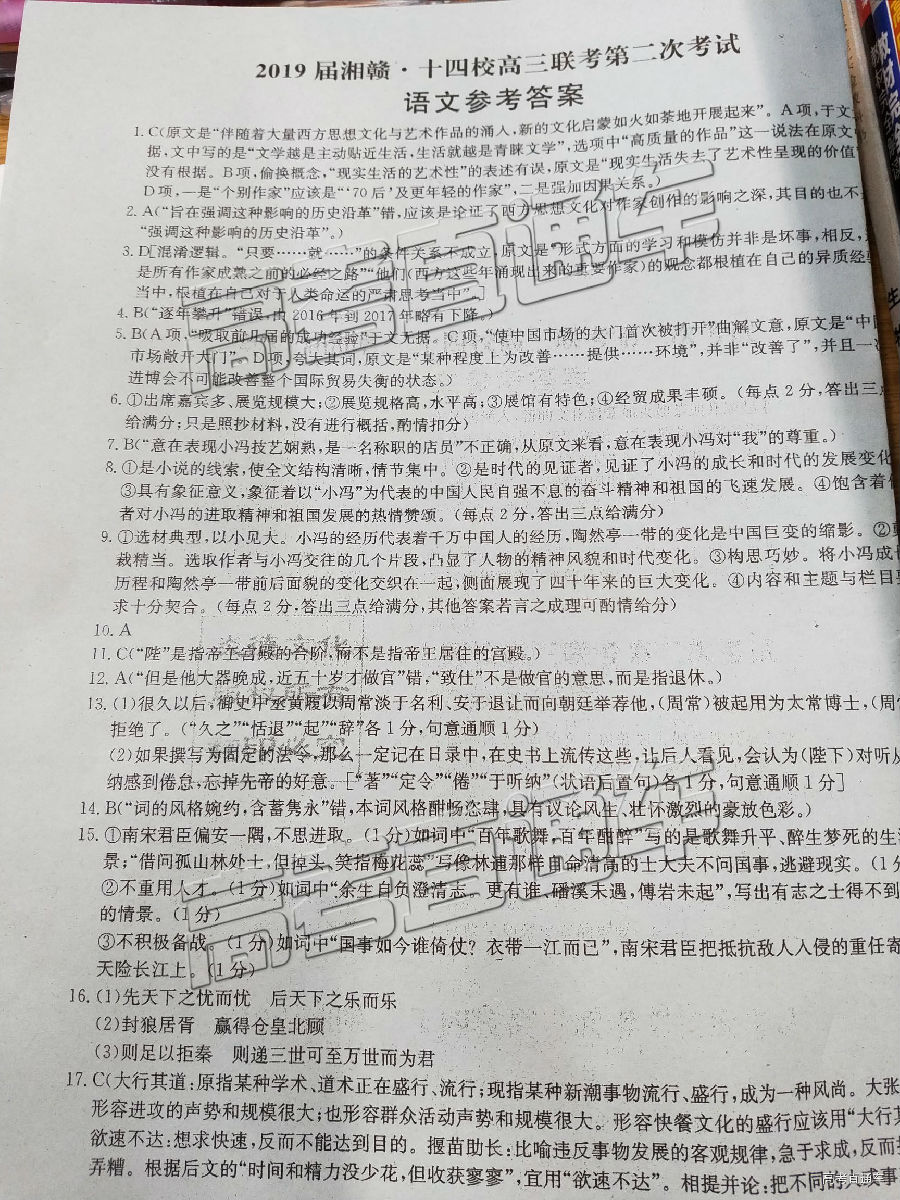 2019 届湘赣·十四校高三联考第二次考试
语文参考答案
1. C(原文是“伴随着大量西方思想文化与艺术作品的涌入,新的文化启蒙如火如荼地开展起来”。A项,于文
据,文中写的是“文学越是主动贴近生活,生活就越是青睐文学”,选项中“高质量的作品”这一说法在原文
没有根据。B项,偷换概念,“现实生活的艺术性”的表述有误,原文是“现实生活失去了艺术性呈现的价值”
D项,一是“个别作家”应该是“‘70后’及更年轻的作家”,二是强加因果关系。)
2. A(“旨在强调这种影响的历史沿革”错,应该是论证了西方思想文化对作家创作的影响之深,其目的也不
“强调这种影响的历史沿革”。)
3. D[混淆逻辑。“只要……就……”的条件关系不成立,原文是“形式方面的学习和模仿并非是坏事,相反,
是所有作家成熟之前的必经之路”“他们(西方这些年涌现出来的重要作家)的观念都根植在自己的异质经
当中,根植在自己对于人类命运的严肃思考当中”。]
4. B(“逐年攀升”错误,由2016年到2017年略有下降。)
5. B(A项,“吸取前几届的成功经验”于文无据。C项,“使中国市场的大门首次被打开”曲解文意,原文是“中
市场敞开大门”。D项,夸大其词,原文是“某种程度上为改善……提供……环境”,并非“改善了”,并且一
进博会不可能改善整个国际贸易失衡的状态。)
6. ①出席嘉宾多、展览规模大;②展览规格高,水平高;③展馆有特色;④经贸成果丰硕。(每点2分,答出三
给满分;只是照抄材料,没有进行概括,酌情扣分)
7. B(“意在表现小冯技艺娴熟,是一名称职的店员”不正确,从原文来看,意在表现小冯对“我”的尊重。)
8. ①是小说的线索,使全文结构清晰,情节集中。②是时代的见证者,见证了小冯的成长和时代的发展变化
③具有象征意义,象征着以“小冯”为代表的中国人民自强不息的奋斗精神和祖国的飞速发展。④饱含着
者对小冯的进取精神和祖国发展的热情赞颂。(每点2分,答出三点给满分)
9. ①选材典型,以小见大。小冯的经历代表着千万中国人的经历,陶然亭一带的变化是中国巨变的缩影。②
裁精当。选取作者与小冯交往的几个片段,凸显了人物的精神风貌和时代变化。③构思巧妙。将小冯成
历程和陶然亭一带前后面貌的变化交织在一起,侧面展现了四十年来的巨大变化。④内容和主题与栏目
求十分契合。(每点2分,答出三点给满分,其他答案若言之成理可酌情给分)
10. A
11. C(“陛”是指帝王宫殿的台阶,而不是指帝王居住的宫殿。)
12. A(“但是他大器晚成,近五十岁才做官”错,“致仕”不是做官的意思,而是指退休。)
13. (1)很久以后,御史中丞黄履以周常淡于名利、安于退让而向朝廷举荐他,(周常)被起用为太常博士,(周
拒绝了。(“久之”“恬退”“起”“辞”各1分,句意通顺1分)
(2)如果撰写为固定的法令,那么一定记在日录中,在史书上流传这些,让后人看见,会认为(陛下)对听
纳感到倦怠,忘掉先帝的好意。[“著”“定令”“倦”“于听纳”(状语后置句)各1分,句意通顺1分]
14. B(“词的风格婉约,含蓄隽永”错,本词风格酣畅恣肆,具有议论风生、壮怀激烈的豪放色彩。)
15. ①南宋君臣偏安一隅,不思进取。(1分)如词中“百年歌舞,百年酣醉”写的是歌舞升平、醉生梦死的生
景;“借问孤山林处士,但掉头、笑指梅花蕊”写像林逋那样自命清高的士大夫不问国事,逃避现实。(1
②不重用人才。(1分)如词中“余生自负澄清志。更有谁、磻溪未遇,傅岩未起”,写出有志之士得不到
的情景。(1分)
③不积极备战。(1分)如词中“国事如今谁倚仗?衣带一江而已”,南宋君臣把抵抗敌人入侵的重任寄
天险长江上。(1分)
16. (1)先天下之忧而忧 后天下之乐而乐
(2)封狼居胥 赢得仓皇北顾
(3)则足以拒秦 则递三世可至万世而为君
17. C(大行其道:原指某种学术、道术正在盛行、流行;现指某种新潮事物流行、盛行,成为一种风尚。大张
形容进攻的声势和规模很大;也形容群众活动声势和规模很大。形容快餐文化的盛行应该用“大行
欲速不达:想求快速,反而不能达到目的。揠苗助长:比喻违反事物发展的客观规律,急于求成,反而
弄糟。根据后文的“时间和精力没少花,但收获寥寥”,宜用“欲速不达”。相提并论:把不同的人或事
高考直通车
高考直通车
高考直通车